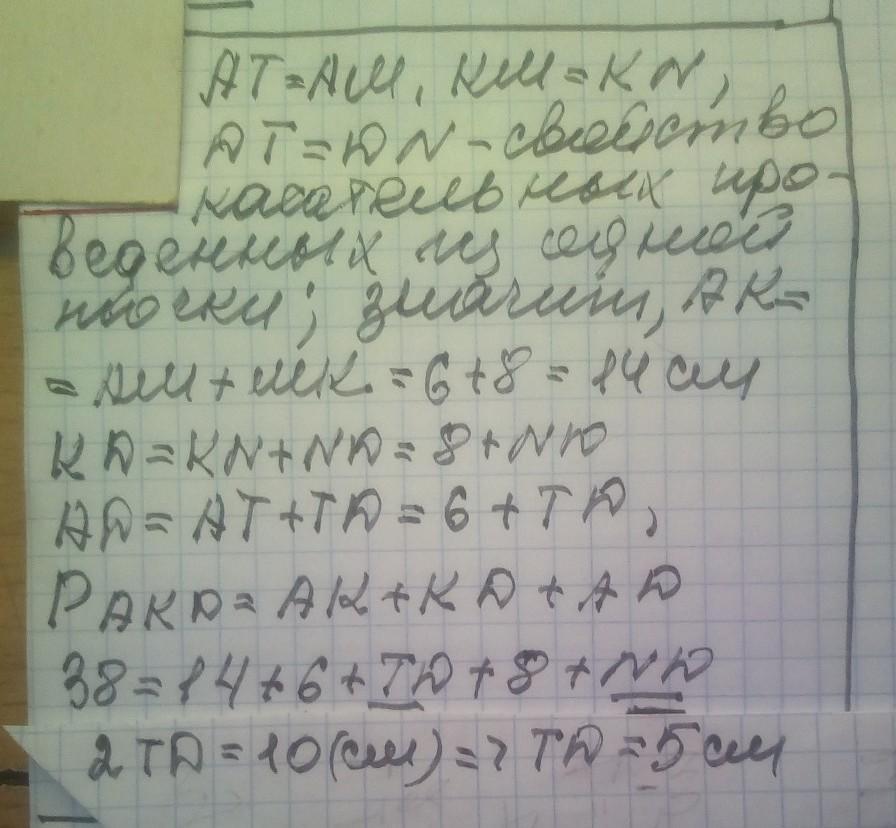 AT=AM, KM=KN,
DT=DN-свойство
касательных про-
веденных из одной
точки; значит, AK=
= AM+MK = 6+8 = 14 см
KD=KN+ND=8+ND
AD=AT+TD=6+TD,
P AKD=AK+KD+AD
38=14+6+TD+8+ND
2TD=10(см)=> TD=5см